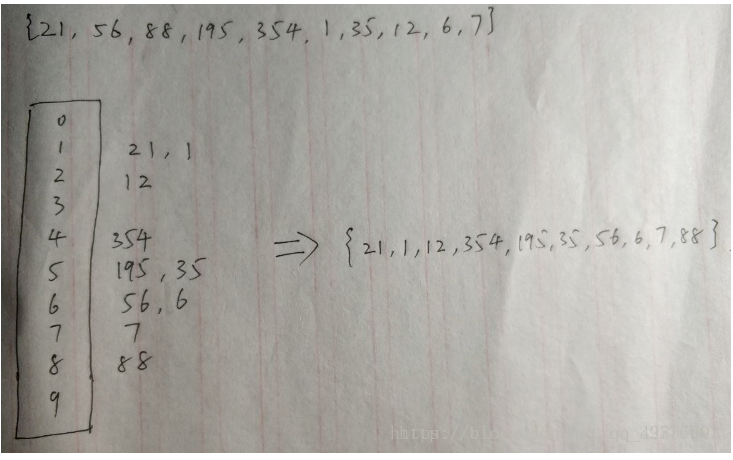 {21, 56, 88, 195, 354, 1, 35, 12, 6, 7}
0
1 21, 1
2 12
3
4 354
5 195, 35
6 56, 6
7 7
8 88
9
=> {21, 1, 12, 354, 195, 35, 56, 6, 7, 88}